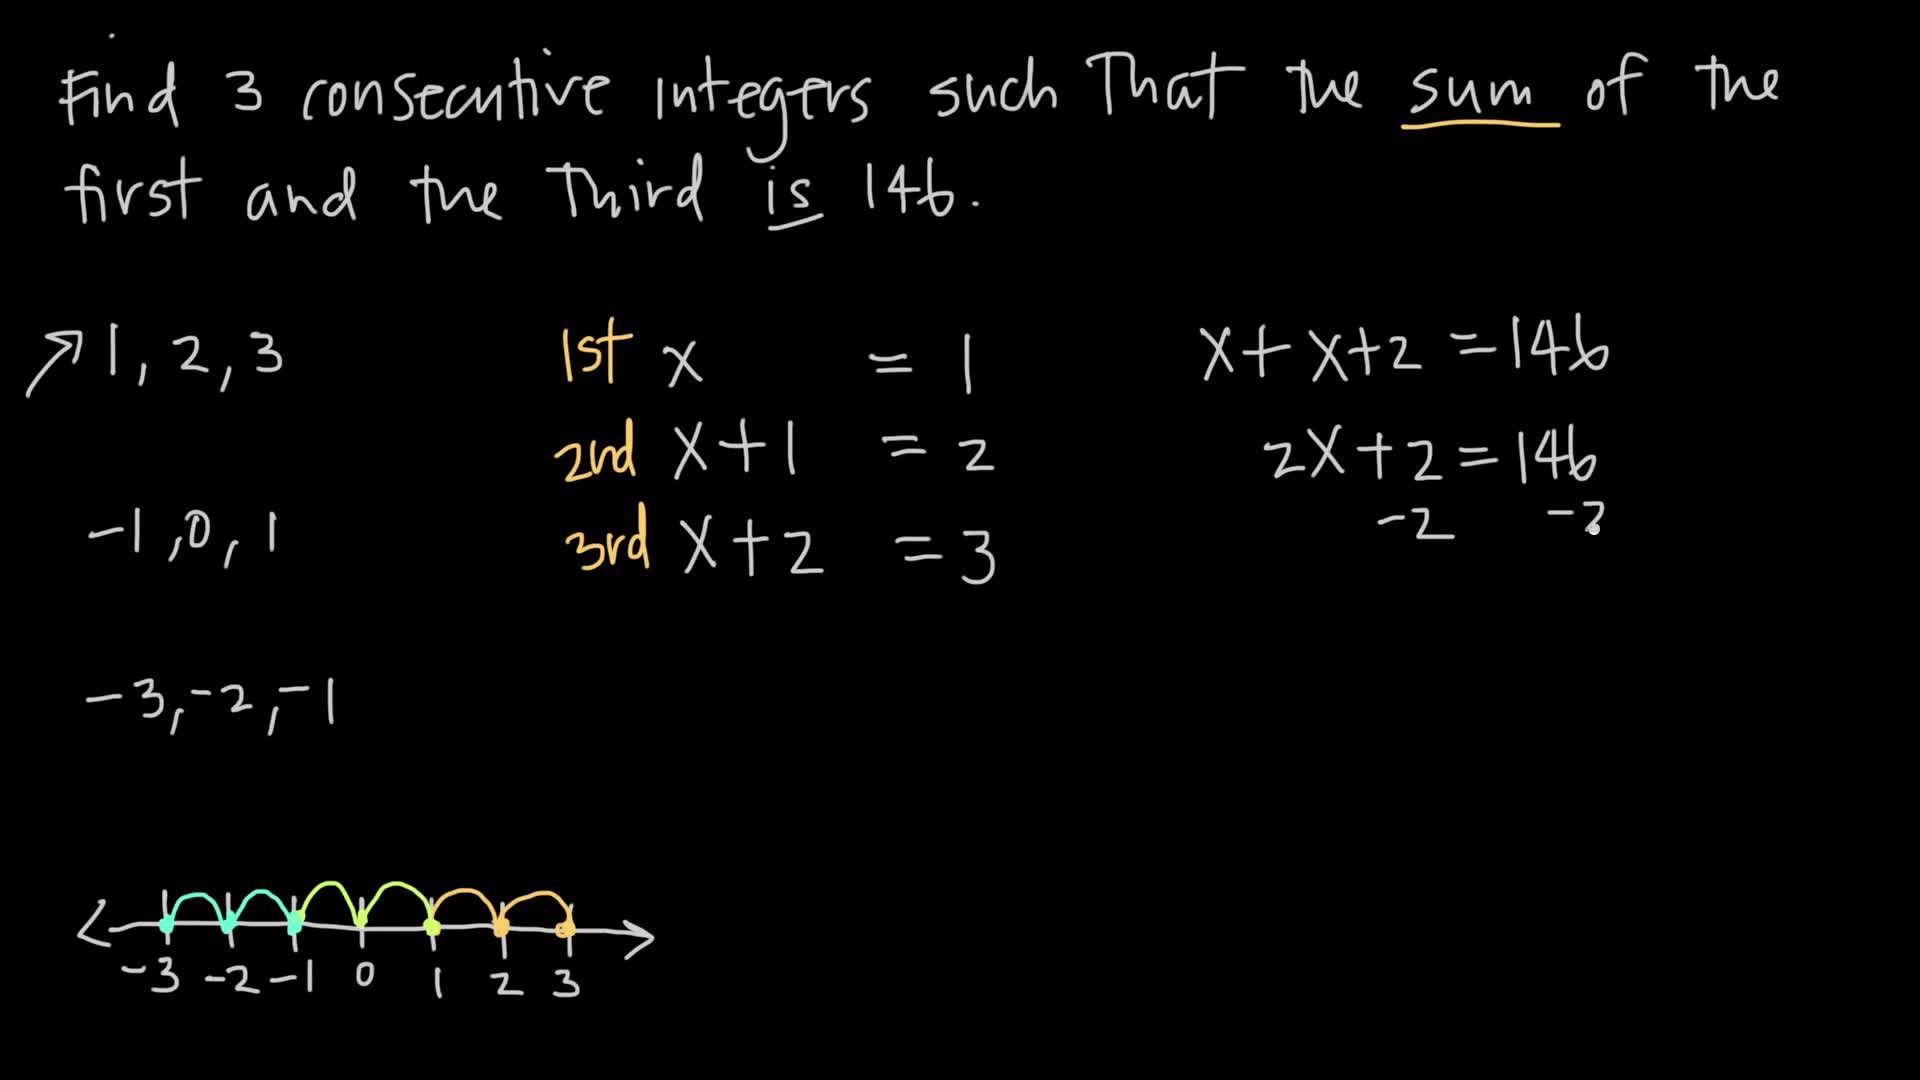 Find 3 consecutive integers such That the sum of the
first and the Third is 146.
1, 2, 3
-1, 0, 1
-3, -2, -1
1st x = 1
2nd x+1 = 2
3rd x+2 = 3
x+x+2 = 146
2x+2 = 146
-2 -2
-3 -2 -1 0 1 2 3